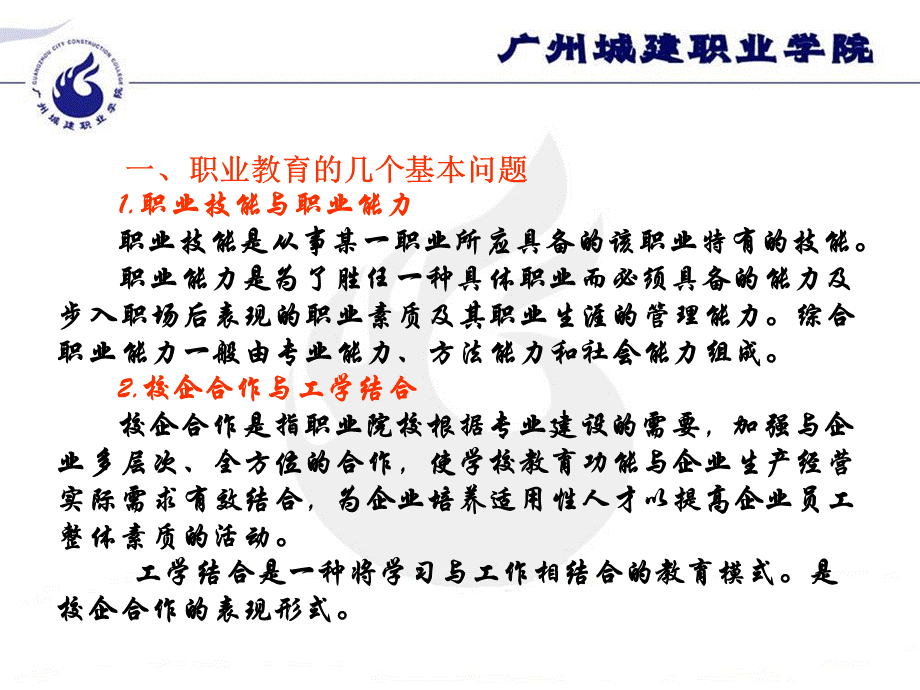 GUANGZHOU CITY CONSTRUCTION COLLEGE
广州城建职业学院
广州城建职业学院
一、职业教育的几个基本问题
1.职业技能与职业能力
职业技能是从事某一职业所应具备的该职业特有的技能。
职业能力是为了胜任一种具体职业而必须具备的能力及
步入职场后表现的职业素质及其职业生涯的管理能力。综合
职业能力一般由专业能力、方法能力和社会能力组成。
2.校企合作与工学结合
校企合作是指职业院校根据专业建设的需要，加强与企
业多层次、全方位的合作，使学校教育功能与企业生产经营
实际需求有效结合，为企业培养适用性人才以提高企业员工
整体素质的活动。
工学结合是一种将学习与工作相结合的教育模式。是
校企合作的表现形式。